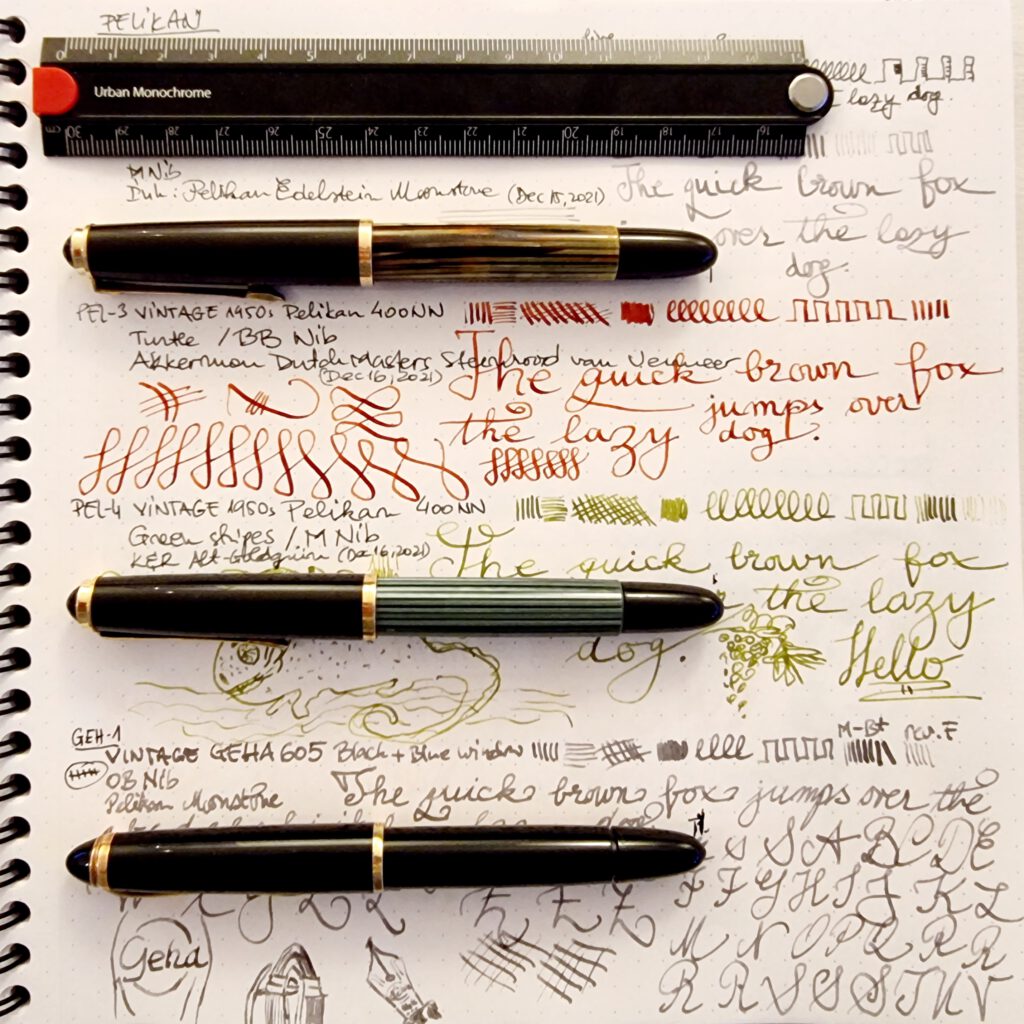 PELIKAN
0 1 2 3 4 5 6 7 8 9 10 11 12 13 14 15
Urban Monochrome
lazy dog.
cm 30 29 28 27 26 25 24 23 22 21 20 19 18 17 16
M Nib
Ink: Pelikan Edelstein Moonstone (Dec 15, 2021)
The quick brown fox
over the lazy
dog.
PEL-3 VINTAGE 1950s Pelikan 400NN
Turtle / BB Nib
Akkerman Dutch Masters Steenrood van Vermeer
(Dec 16, 2021)
The quick brown fox
jumps over
the lazy dog.
PEL-4 VINTAGE 1950s Pelikan 400NN
Green stripes / M Nib
KER Alt-Goldgrün (Dec 16, 2021)
The quick brown fox
the lazy
dog.
Hello
GEH-1
VINTAGE GEHA 605 Black + Blue window
M-B+
OB Nib
Pelikan Moonstone
The quick brown fox jumps over the
S A B C D E
F F G H I J K L
M N O P Q R R
R R S S S T U V
Geha